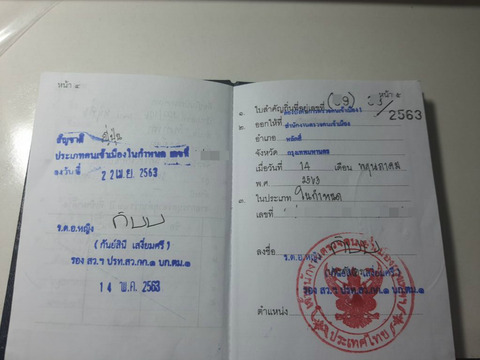 หน้า ๔
สัญชาติ ญี่ปุ่น
ประเภทคนเข้าเมืองในกำหนด เลขที่
ลงวันที่ 22 เม.ย. 2563
ร.ต.อ.หญิง
( กันย์สินี เสงี่ยมศรี )
รอง สว.ฯ ปรท.สว.กก.๑ บก.ตม.๑
14 พ.ค. 2563
หน้า ๕
๑. ใบสำคัญถิ่นที่อยู่เลขที่ (69) /2563
๒. ออกให้ที่ สำนักงานตรวจคนเข้าเมือง
อำเภอ
จังหวัด กรุงเทพมหานคร
เมื่อวันที่ 14 เดือน พฤษภาคม
พ.ศ. 2563
๓. ในประเภท ในกำหนด
เลขที่
ลงชื่อ ร.ต.อ.หญิง
(กันย์สินี เสงี่ยมศรี)
รอง สว.ฯ ปรท.สว.กก.๑ บก.ตม.๑
ตำแหน่ง
ประเทศไทย